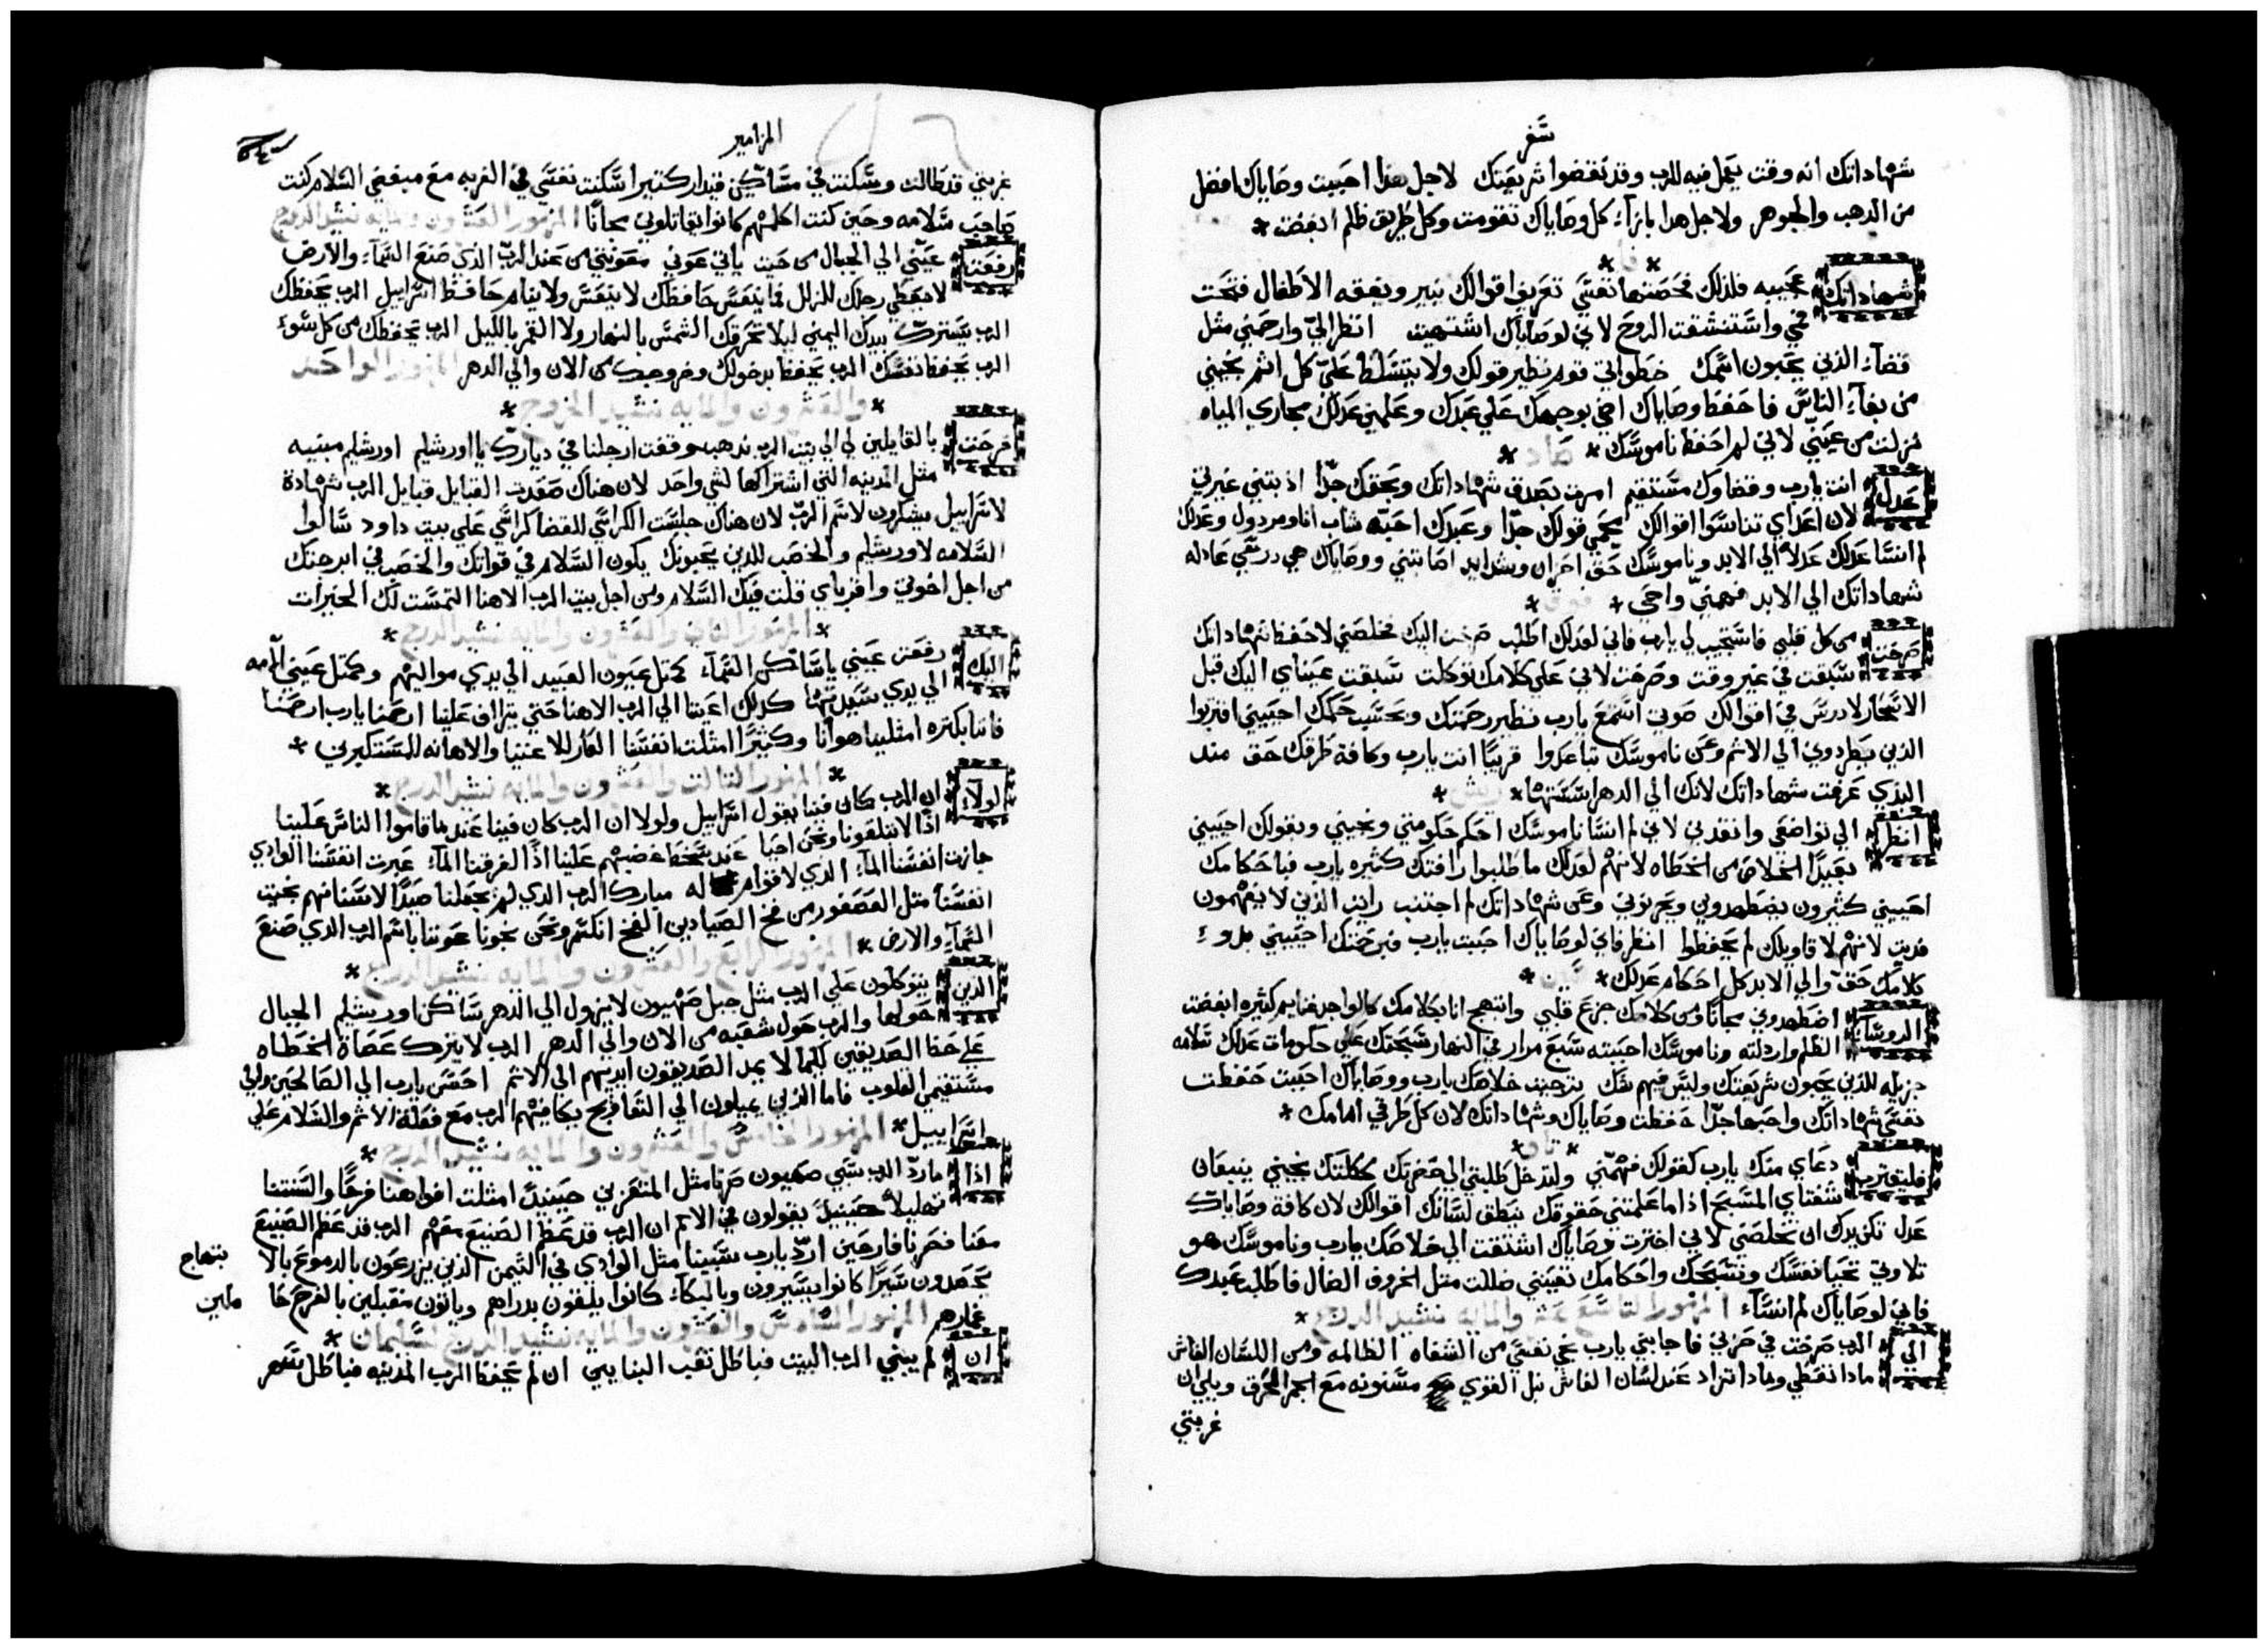 سفر
شهاداتك انه وقت يعمل فيه للرب وقد نقضوا شريعتك لاجل هذا احببت وصاياك افضل
من الدهب والجوهر ولاجل هدا بازآء كل وصاياك تقومت وكل طريق ظلم ابغضت *
* فا *
شهاداتك عجيبه فلذلك فحصتها نفسي تعريف اقوالك ينير ويفقه الاطفال فتحت
فمي واستنشقت الروح لاني لوصاياك اشتهيت انظر اليّ وارحمني مثل
قضاء الذين يحبون اسمك خطواتي قوم نظير قولك ولا يتسلط عليّ كل اثم نجيني
من بغآء الناس فاحفظ وصاياك اضي بوجهك علي عبدك وعلمني عدلك مجاري المياه
نزلت من عينيّ لاني لم احفظ ناموسك * صاد *
عدل انت يارب وقضاوك مستقيم امرت بصدق شهاداتك وبحقك جدّا اذ بتني غيرتي
لان اعداي تناسوا اقوالك محمي قولك جدّا وعبدك احبّه شاب انا ومردول وعدلك
لم انسا عدلك عدلاً الي الابد وناموسك حق احزان وشدايد اصابتني ووصاياك هي درسي عادله
شهاداتك الي الابد فهمني واحي * قوف *
صرخت من كل قلبي فاستجيب لي يارب فاني لعدلك اطلب صرخت اليك فخلصني لاحفظ شهاداتك
سبقت في غير وقت وصرخت لاني علي كلامك توكلت سبقت عيناي اليك قبل
الاسحار لادرس في اقوالك صوتي اسمع يارب نظير رحمتك وبحسب حكمك احييني اقتربوا
الذين يطردوني الي الاثم وعن ناموسك تباعدوا قريبًا انت يارب وكافة طرقك حق مند
البدي عرفت شهاداتك لانك الي الدهر اسستها * ريش *
انظر الي تواضعي وانقدني لاني لم انسا ناموسك احكم حكومتي ونجيني وبقولك احييني
بعيدًا الخلاص من الخطاه لانهم لعدلك ما طلبوا رافتك كثيره يارب فباحكامك
احييني كثيرون يضطهدوني ويحزنوني وعن شهاداتك لم اجتنب رايت الذين لا يفهمون
فديت لانهم لاقاويلك لم يحفظوا انظر فاني لوصاياك احببت يارب فبرحمتك احييني بدوء
كلامك حق والي الابد كل احكام عدلك * شين *
الروسآء اضطهدوني مجانًا ومن كلامك جزع قلبي وابتهج انا بكلامك كالواجد غنايم كثيره ابغضت
الظلم واردلته وناموسك احببته سبع مرار في النهار سبحتك علي حكومات عدلك سلامه
جزيله للذين يحبون شريعتك وليس فيهم شك يترجيت خلاصك يارب ووصاياك احببت حفظت
نفسي شهاداتك واحبها جدّا حفظت وصاياك وشهاداتك لان كل طرقي امامك *
* تاو *
فليقترب دعاي منك يارب كقولك فهمّني ولتدخل طلبتي الي حضرتك ككلمتك نجيني ينبعان
شفتاي المسبح اذا ما علمتني حقوقك ينطق لسانك اقوالك لان كافة وصاياك
عدل تكن يدك ان تخلصني لاني اخترت وصاياك اشتقت الي خلاصك يارب وناموسك هو
تلاوتي تحيا نفسك وتسبحك واحكامك تعينني ضللت مثل الخروف الضال فاطلب عبدك
فاني لوصاياك لم انسآء المزمور التاسع عشر والمايه نشيد الدرج *
الي الرب صرخت في حزني فاجابني يارب نجي نفسي من الشفاه الظالمه ومن اللسان الغاش
مادا تعطي ومادا تزاد عند لسان الغاش نبل القوي مسنونه مع الجمر المحرق ويلي ان
غربتي
المزامير
غربتي قد طالت وسكنت في مساكن قيدار كتيرا سكنت نفسي في الغربه مع مبغضي السلام كنت
صاحب سلامه وحين كنت اكلمهم كانوا يقاتلوني مجانًا المزمور العشرون والمايه نشيد الدرج
رفعت عينّي الي الجبال من حيت ياتي عوني معونتي من عند الرب الذي صنع السماء والارض
لا يعطي رجلك للزلل فما ينعس حافظك لا ينعس ولا ينام حافظ اسراييل الرب يحفظك
الرب يسترك بيدك اليمني ليلا تحرقك الشمس بالنهار ولا القمر بالليل الرب يحفظك من كل سوء
الرب يحفظ نفسك الرب يحفظ دخولك وخروجك من الان والي الدهر المزمور الواحد
* والعشرون والمايه نشيد الدرج *
فرحت بالقايلين لي الي بيت الرب ندهب وقفت ارجلنا في ديارك يا اورشليم اورشليم مبنيه
مثل المدينه التي اشتراكها لشي واحد لان هناك صعدت القبايل قبايل الرب شهادة
لاسراييل يشكرون لاسم الرب لان هناك جلست الكراسي للقضا كراسي علي بيت داود سالوا
السلامه لاورشليم والخصب للدين يحبونك يكون السلام في قواتك والخصب في ابرجتك
من اجل اخوتي واقرباي قلت فيك السلام ومن اجل بيت الرب الاهنا التمست لك الخيرات
* المزمور الثاني والعشرون والمايه نشيد الدرج *
اليك رفعت عيني يا ساكن السمآء كمثل عيون العبيد الي يدي مواليهم وكمثل عيني الامه
الي يدي سيدتها كدلك اعيننا الي الرب الاهنا حتي يتراف علينا ارحمنا يارب ارحمنا
فاننا بكتره امتلينا هوانًا وكثيرًا امتلت انفسنا العار للاغنيا والاهانه للمستكبرين *
* المزمور الثالث والعشرون والمايه نشيد الدرج *
لولا ان الرب كان فينا يقول اسراييل ولولا ان الرب كان فينا عند ما قاموا الناس علينا
اذًا لابتلعونا ونحن احيا عند سخط غضبهم علينا اذًا لغرقنا المآء عبرت انفسنا الوادي
جازت انفسنا المآء الذي لا قوام له مبارك الرب الدي لم يجعلنا صيدًا لاسنانهم نجيت
انفسنا مثل العصفور من فخ الصيادين الفخ انكسر ونحن نجونا عوننا باسم الرب الدي صنع
السمآء والارض * المزمور الرابع والعشرون والمايه نشيد الدرج *
الذين يتوكلون علي الرب مثل جبل صهيون لا يزول الي الدهر ساكن اورشليم الجبال
حولها والرب حول شعبه من الان والي الدهر الرب لا يترك عصاة الخطاه
علي حظ الصديقين لكيما لا يمد الصديقون ايديهم الي الاثم احسن يارب الي الصالحين والي
مستقيمي القلوب فاما الذين يميلون الي التعاويج يكافيهم الرب مع فعلة الاثم والسلام علي
اسراييل * المزمور الخامس والعشرون والمايه نشيد الدرج *
اذا ما ردّ الرب سبي صهيون صرنا مثل المتعزيين حينيذً امتلت افواهنا فرحًا والسنتنا
تهليلاً حينيذً يقولون في الامم ان الرب قد عظم الصنيع معهم الرب قد عظم الصنيع
معنا فصرنا فارحين اردّ يارب سبينا مثل الوادي في التيمن الذين يزرعون بالدموع بالا
بتهاج
يحصدون سيرًا كانوا يسيرون وبالبكآء كانوا يلقون بدراهم وياتون مقبلين بالفرح حا
ملين
غمارهم المزمور السادس والعشرون والمايه نشيد الدرج لسليمان *
ان لم يبني الرب البيت فباطل تعب البنايين ان لم يحفظ الرب المدينه فباطل سهر